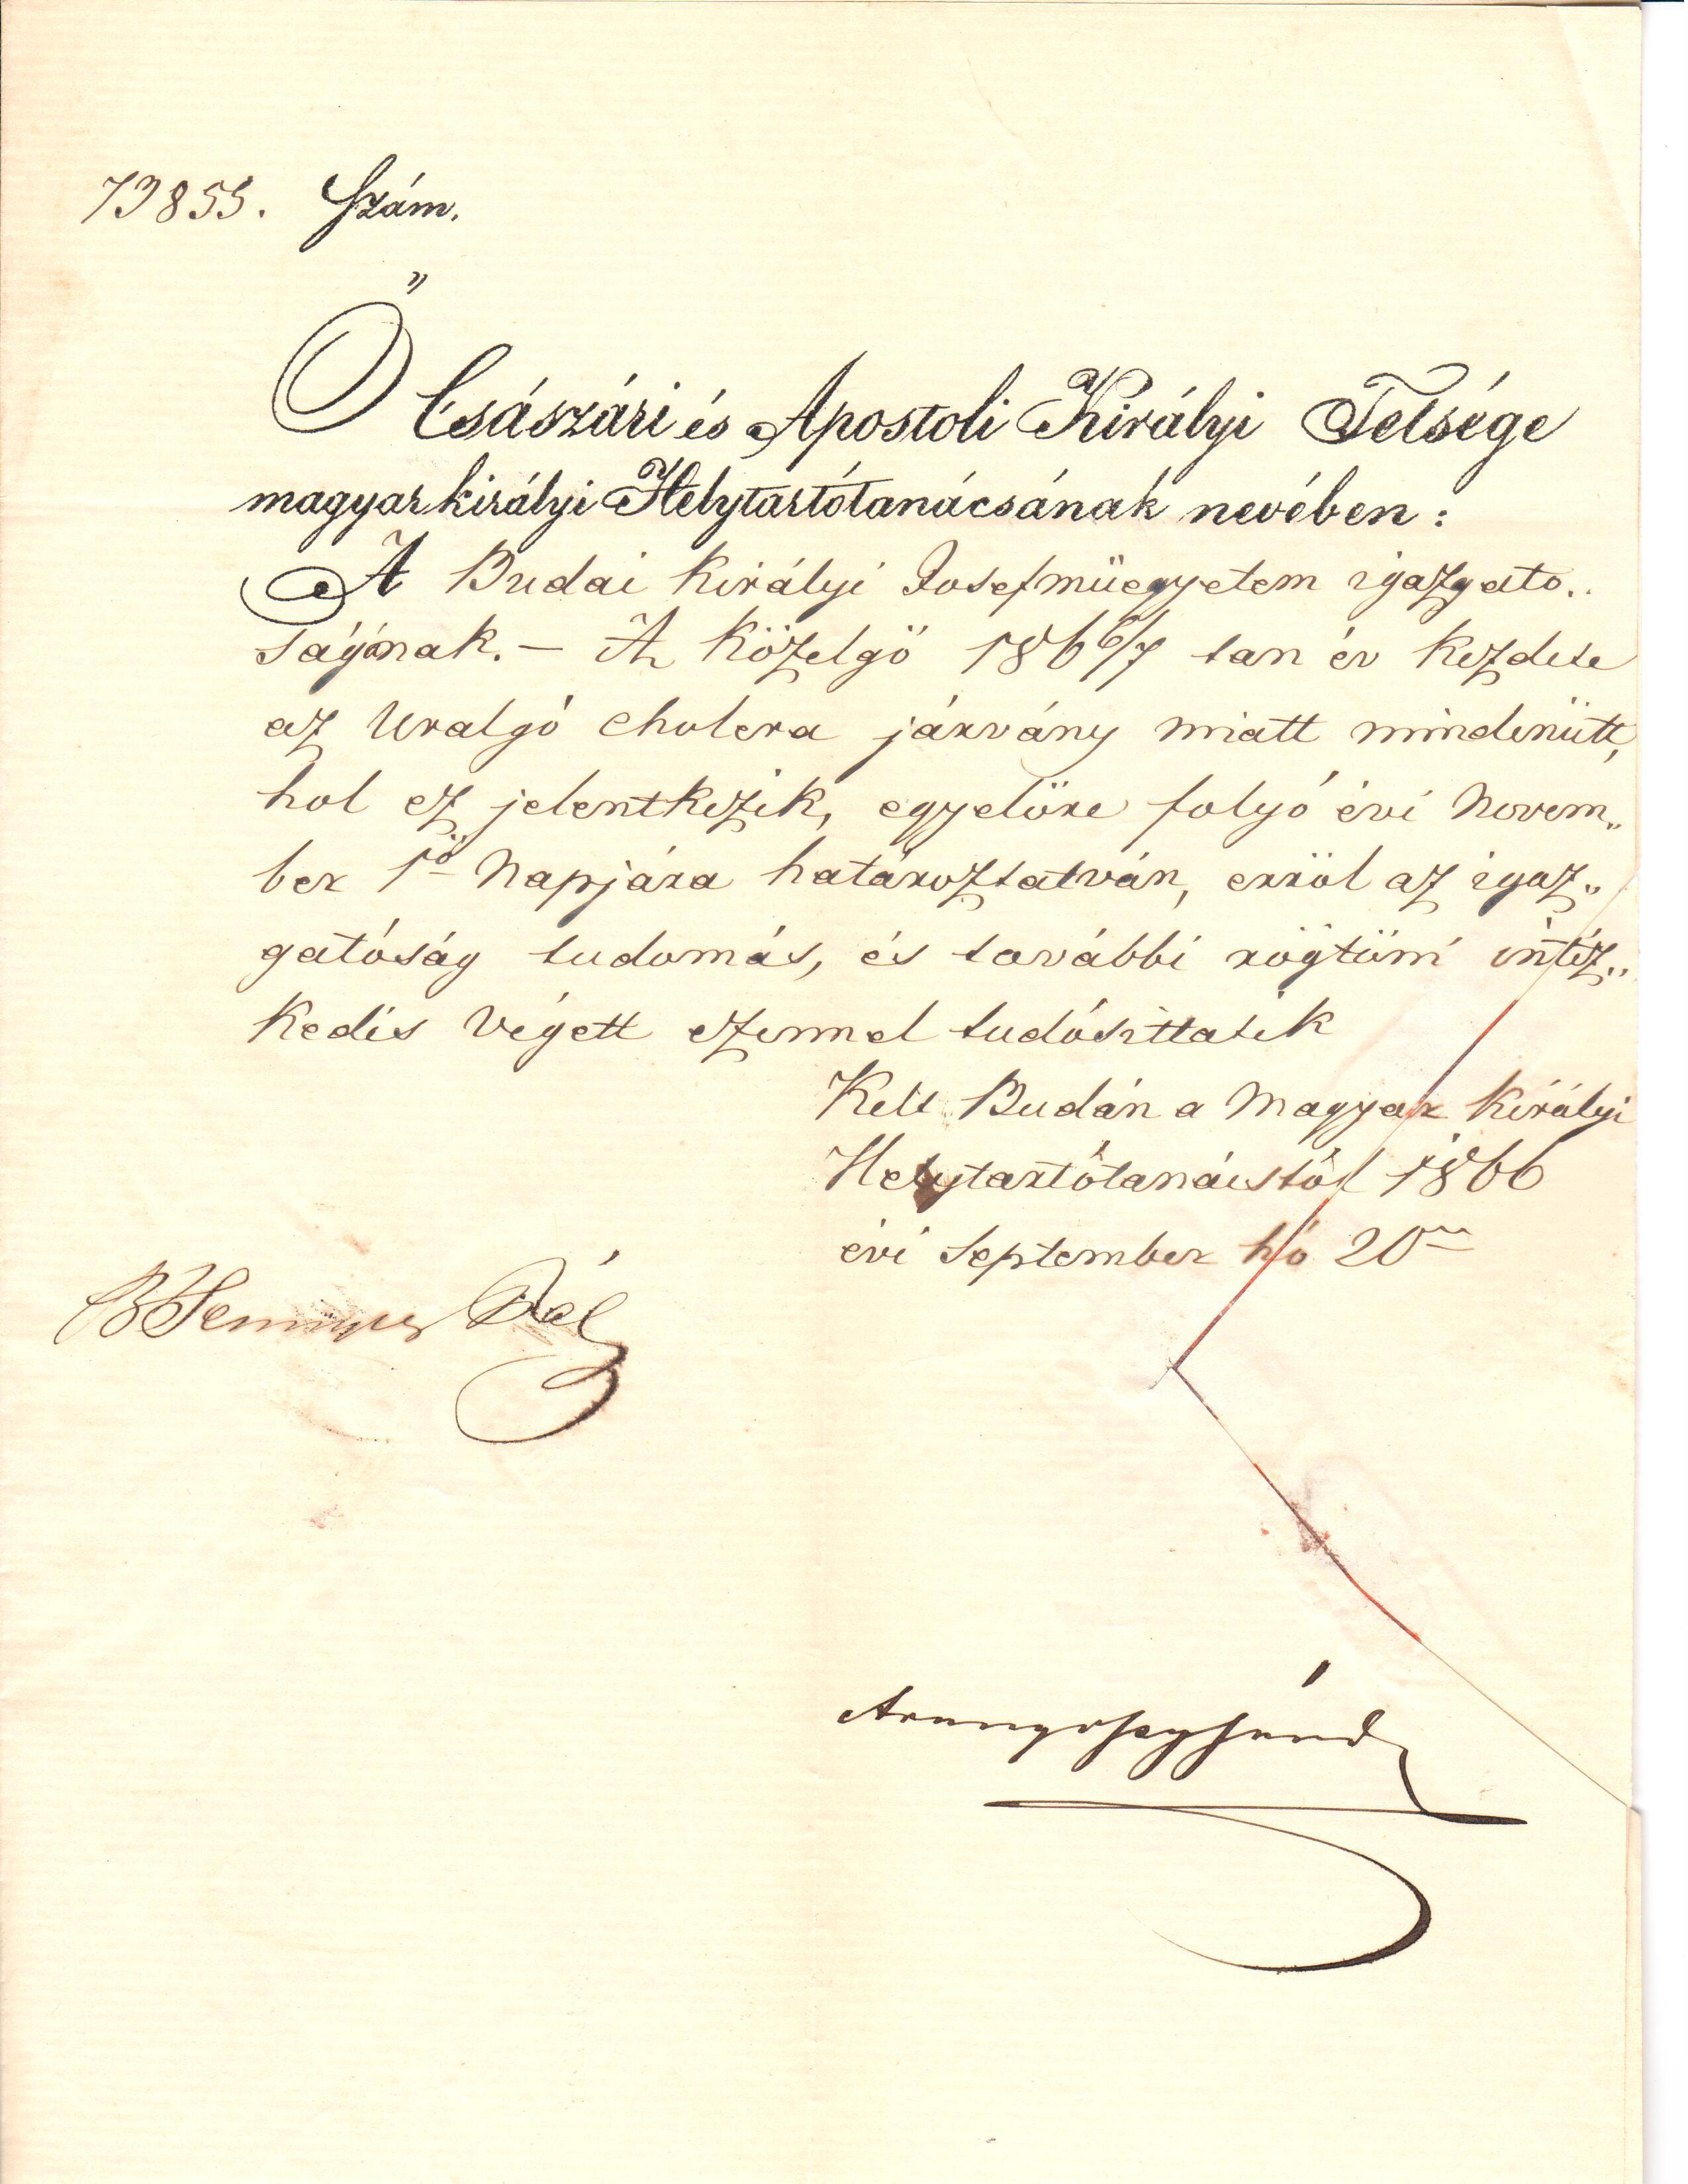 73855. Szám.
Ő Császári és Apostoli Királyi Felsége
magyar királyi Helytartótanácsának nevében:
A Budai Királyi Josefmüegyetem igazgato„
ságának. – A Közelgö 186 6/7 tan év kezdete
az Uralgó cholera járvány miatt mindenütt,
hol ez jelentkezik, egyelöre folyó évi Novem„
ber 1ö Napjára határoztatván, erröl az igaz„
gatóság tudomás, és további rögtüni intéz„
kedés végett ezennel tudósittatik
Kelt Budán a Magyar Királyi
Helytartótanácstól 1866
évi September hó 20
B Sennyey Pál